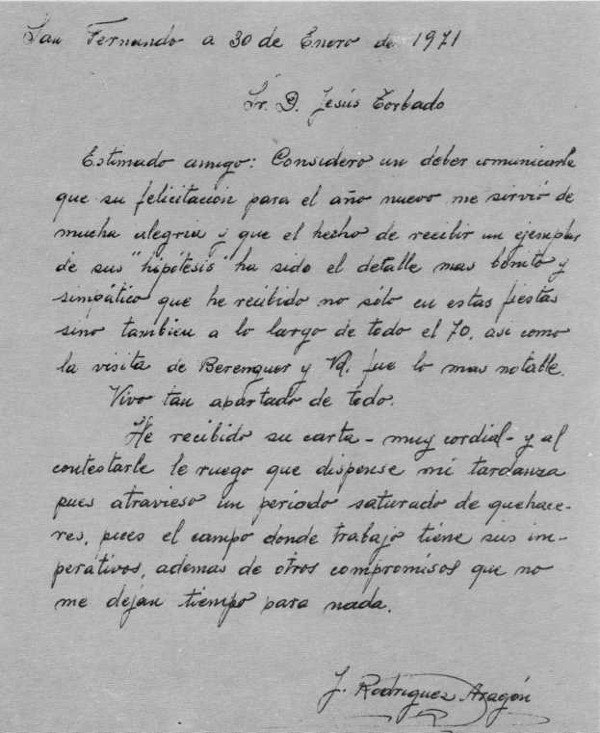 San Fernando a 30 de Enero de 1971
Sr. D. Jesús Torbado
Estimado amigo: Considero un deber comunicarle
que su felicitación para el año nuevo me sirvió de
mucha alegria y que el hecho de recibir un ejemplar
de sus "hipótesis" ha sido el detalle mas bonito y
simpático que he recibido no sólo en estas fiestas
sino tambien a lo largo de todo el 70, asi como
la visita de Berenguer y Vd. fue lo mas notable.
Vivo tan apartado de todo.
He recibido su carta - muy cordial - y al
contestarle le ruego que dispense mi tardanza
pues atravieso un periodo saturado de quehace-
res, pues el campo donde trabajo tiene sus im-
perativos, ademas de otros compromisos que no
me dejan tiempo para nada.
J. Rodriguez Aragón